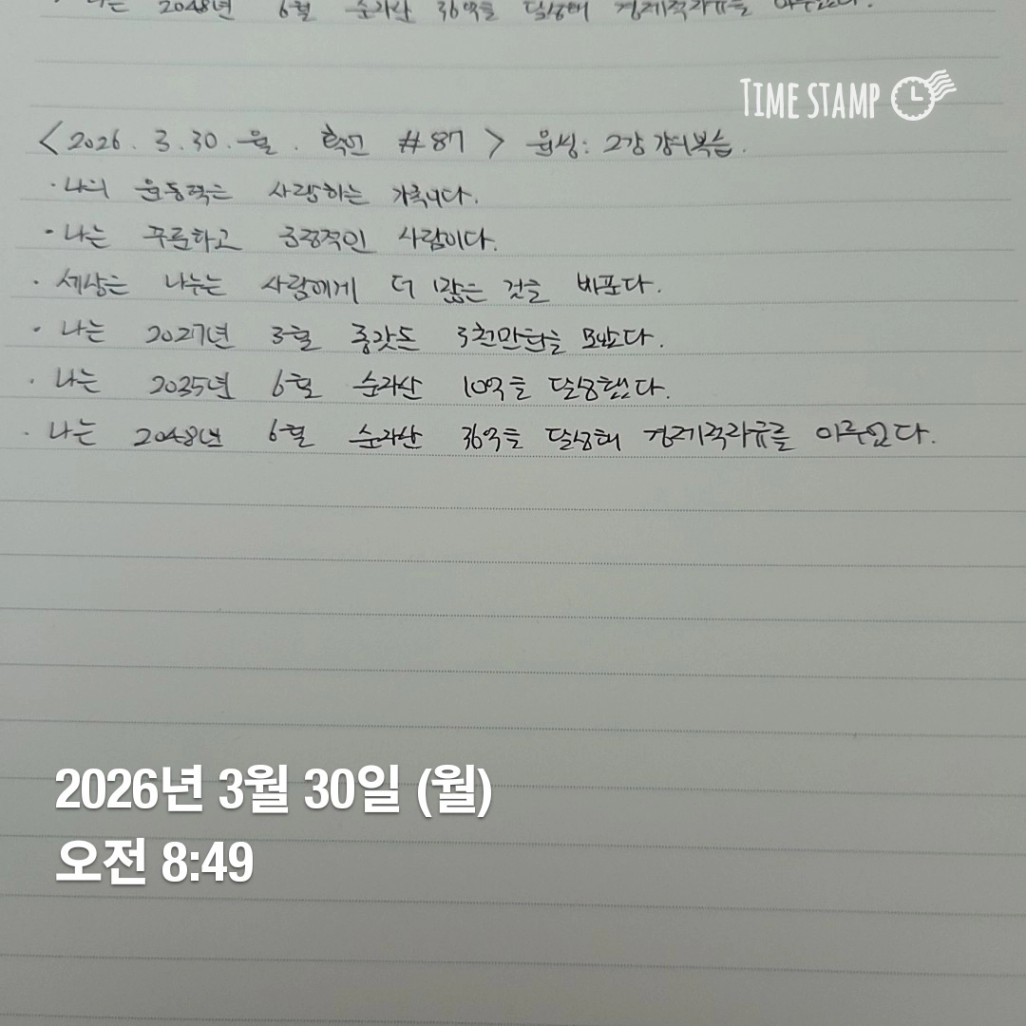 나는 2048년 6월 순자산 36억을 달성해 경제적자유를 이루었다.
TIME STAMP
<2026. 3. 30. 월. 확언 #87> 원씽: 2강 강의복습.
· 나의 원동력은 사랑하는 가족이다.
· 나는 꾸준하고 긍정적인 사람이다.
· 세상은 나누는 사람에게 더 많은 것을 베푼다.
· 나는 2027년 3월 종잣돈 3천만원을 모았다.
· 나는 2035년 6월 순자산 10억을 달성했다.
· 나는 2048년 6월 순자산 36억을 달성해 경제적자유를 이루었다.
2026년 3월 30일 (월)
오전 8:49